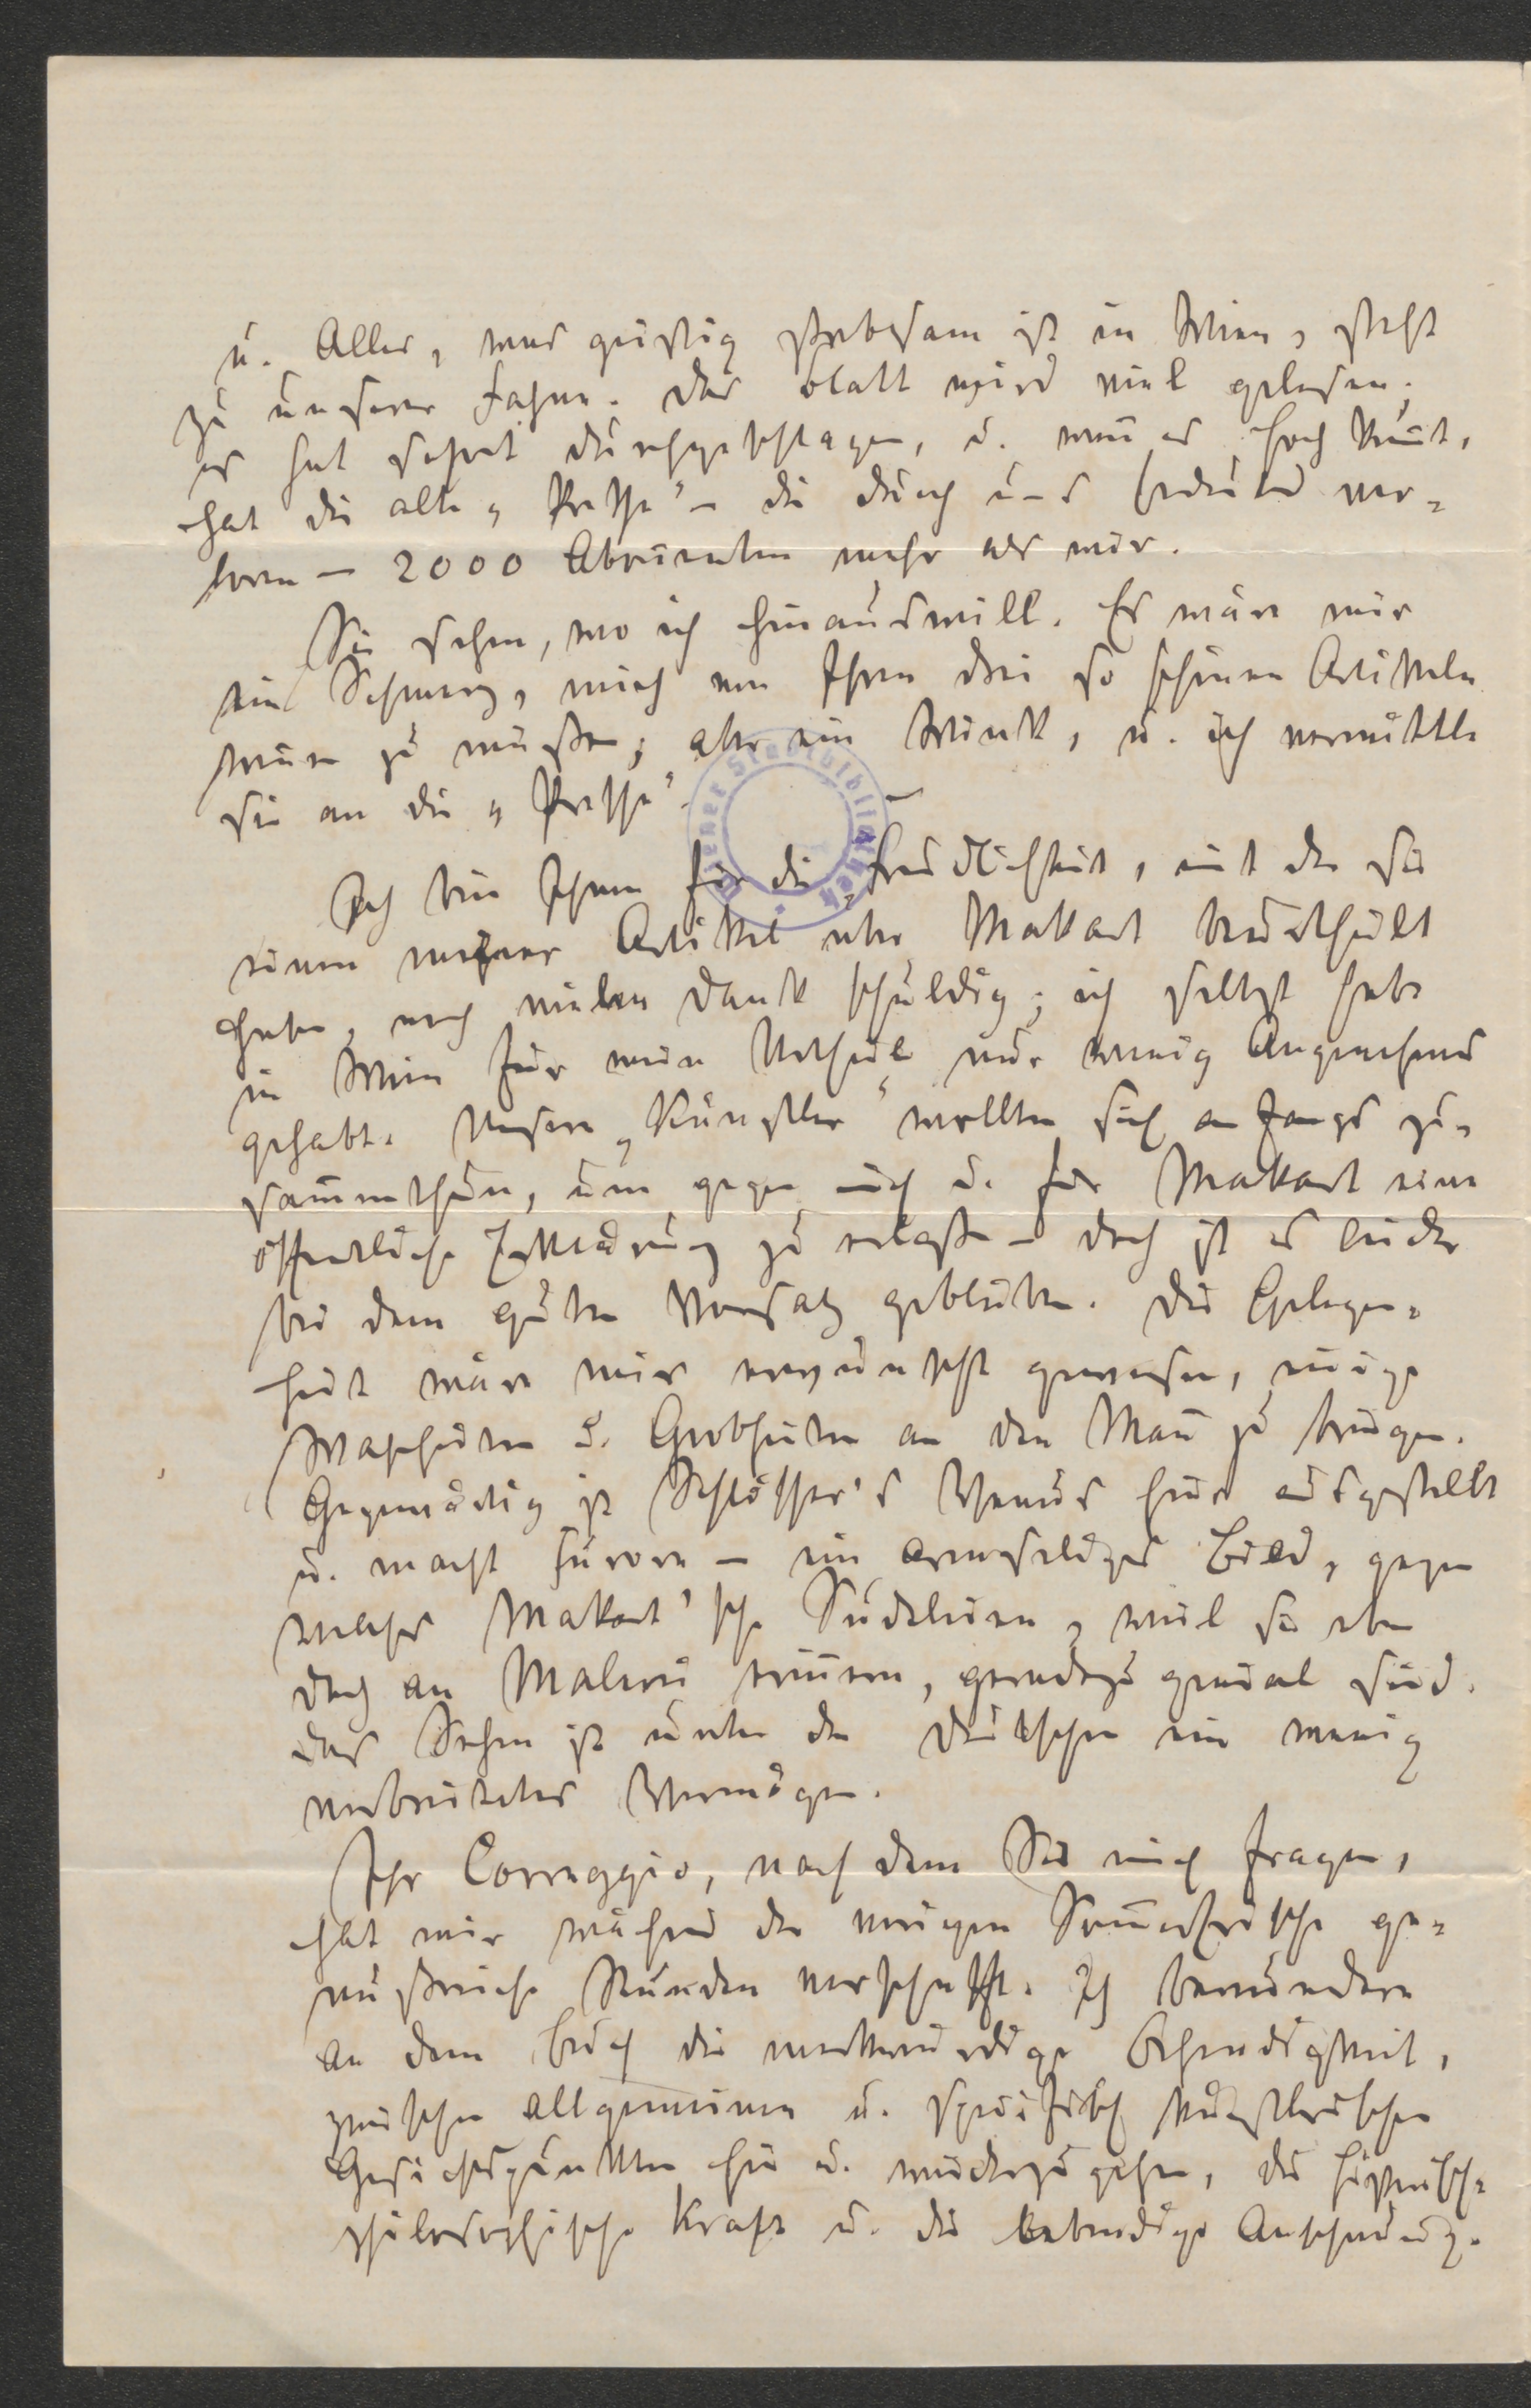 u. Alles, was geistig strebsam ist in Wien, steht
zu unserer Fahne. Das Blatt wird viel gelesen;
es hat sofort durchgeschlagen, u. wenn es hoch kömt,
hat die alte „Presse" – die durch uns bedeutend ver=
loren – 2000 Abonnenten mehr als wir.
Sie sehen, wo ich hinauswill. Es wäre mir
ein Schmerz, mich von Ihren drei so schönen Artikeln
trennen zu müssen; aber ein Wink, u. ich vermittle
sie an die „Presse". –
Ich bin Ihnen für die Freundlichkeit, mit der Sie
einen meiner Artikel über Makart beurtheilt
haben, noch vielen Dank schuldig; ich selbst habe
in Wien für mein Urtheil nur wenig Angenehmes
gehabt. Unsere „Künstler" wollten sich anfangs zu=
sammenthun, um gegen mich u. für Makart eine
öffentliche Erklärung zu erlassen – doch ist es leider
bei dem guten Vorsatz geblieben. Die Gelegen=
heit wäre mir erwünscht gewesen, einige
Wahrheiten u. Grobheiten an den Mann zu bringen.
Gegenwärtig ist Schlösser's Venus hier ausgestellt
u. macht Furore – ein armseliges Bild, gegen
welches Makart'sche Sudeleien, weil sie eben
doch an Malerei erinnern, geradezu genial sind.
Das Sehen ist unter den Deutschen ein wenig
verbreitetes Vermögen.
Ihr Correggio, nach dem Sie mich fragen,
hat mir während der vorigen Sommerfrische ge=
nußreiche Stunden verschafft. Ich bewundere
an dem Buch die merkwürdige Behendigkeit,
zwischen allgemeinen u. specifisch künstlerischen
Gesichtspunkten hin u. wiederzugehen, die historisch=
philosophische Kraft u. die lebendige Anschauung.
Wiener Stadtbibliothek